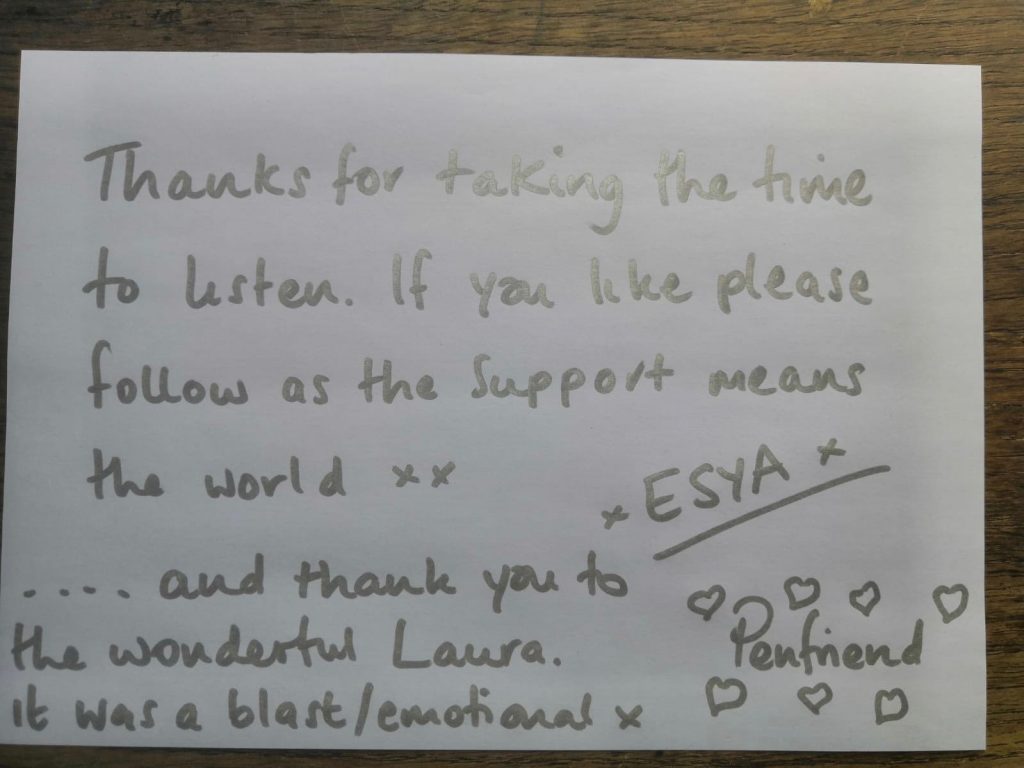 Thanks for taking the time
to listen. If you like please
follow as the support means
the world xx
x ESYA x
.... and thank you to
the wonderful Laura.
it was a blast/emotional x
Penfriend